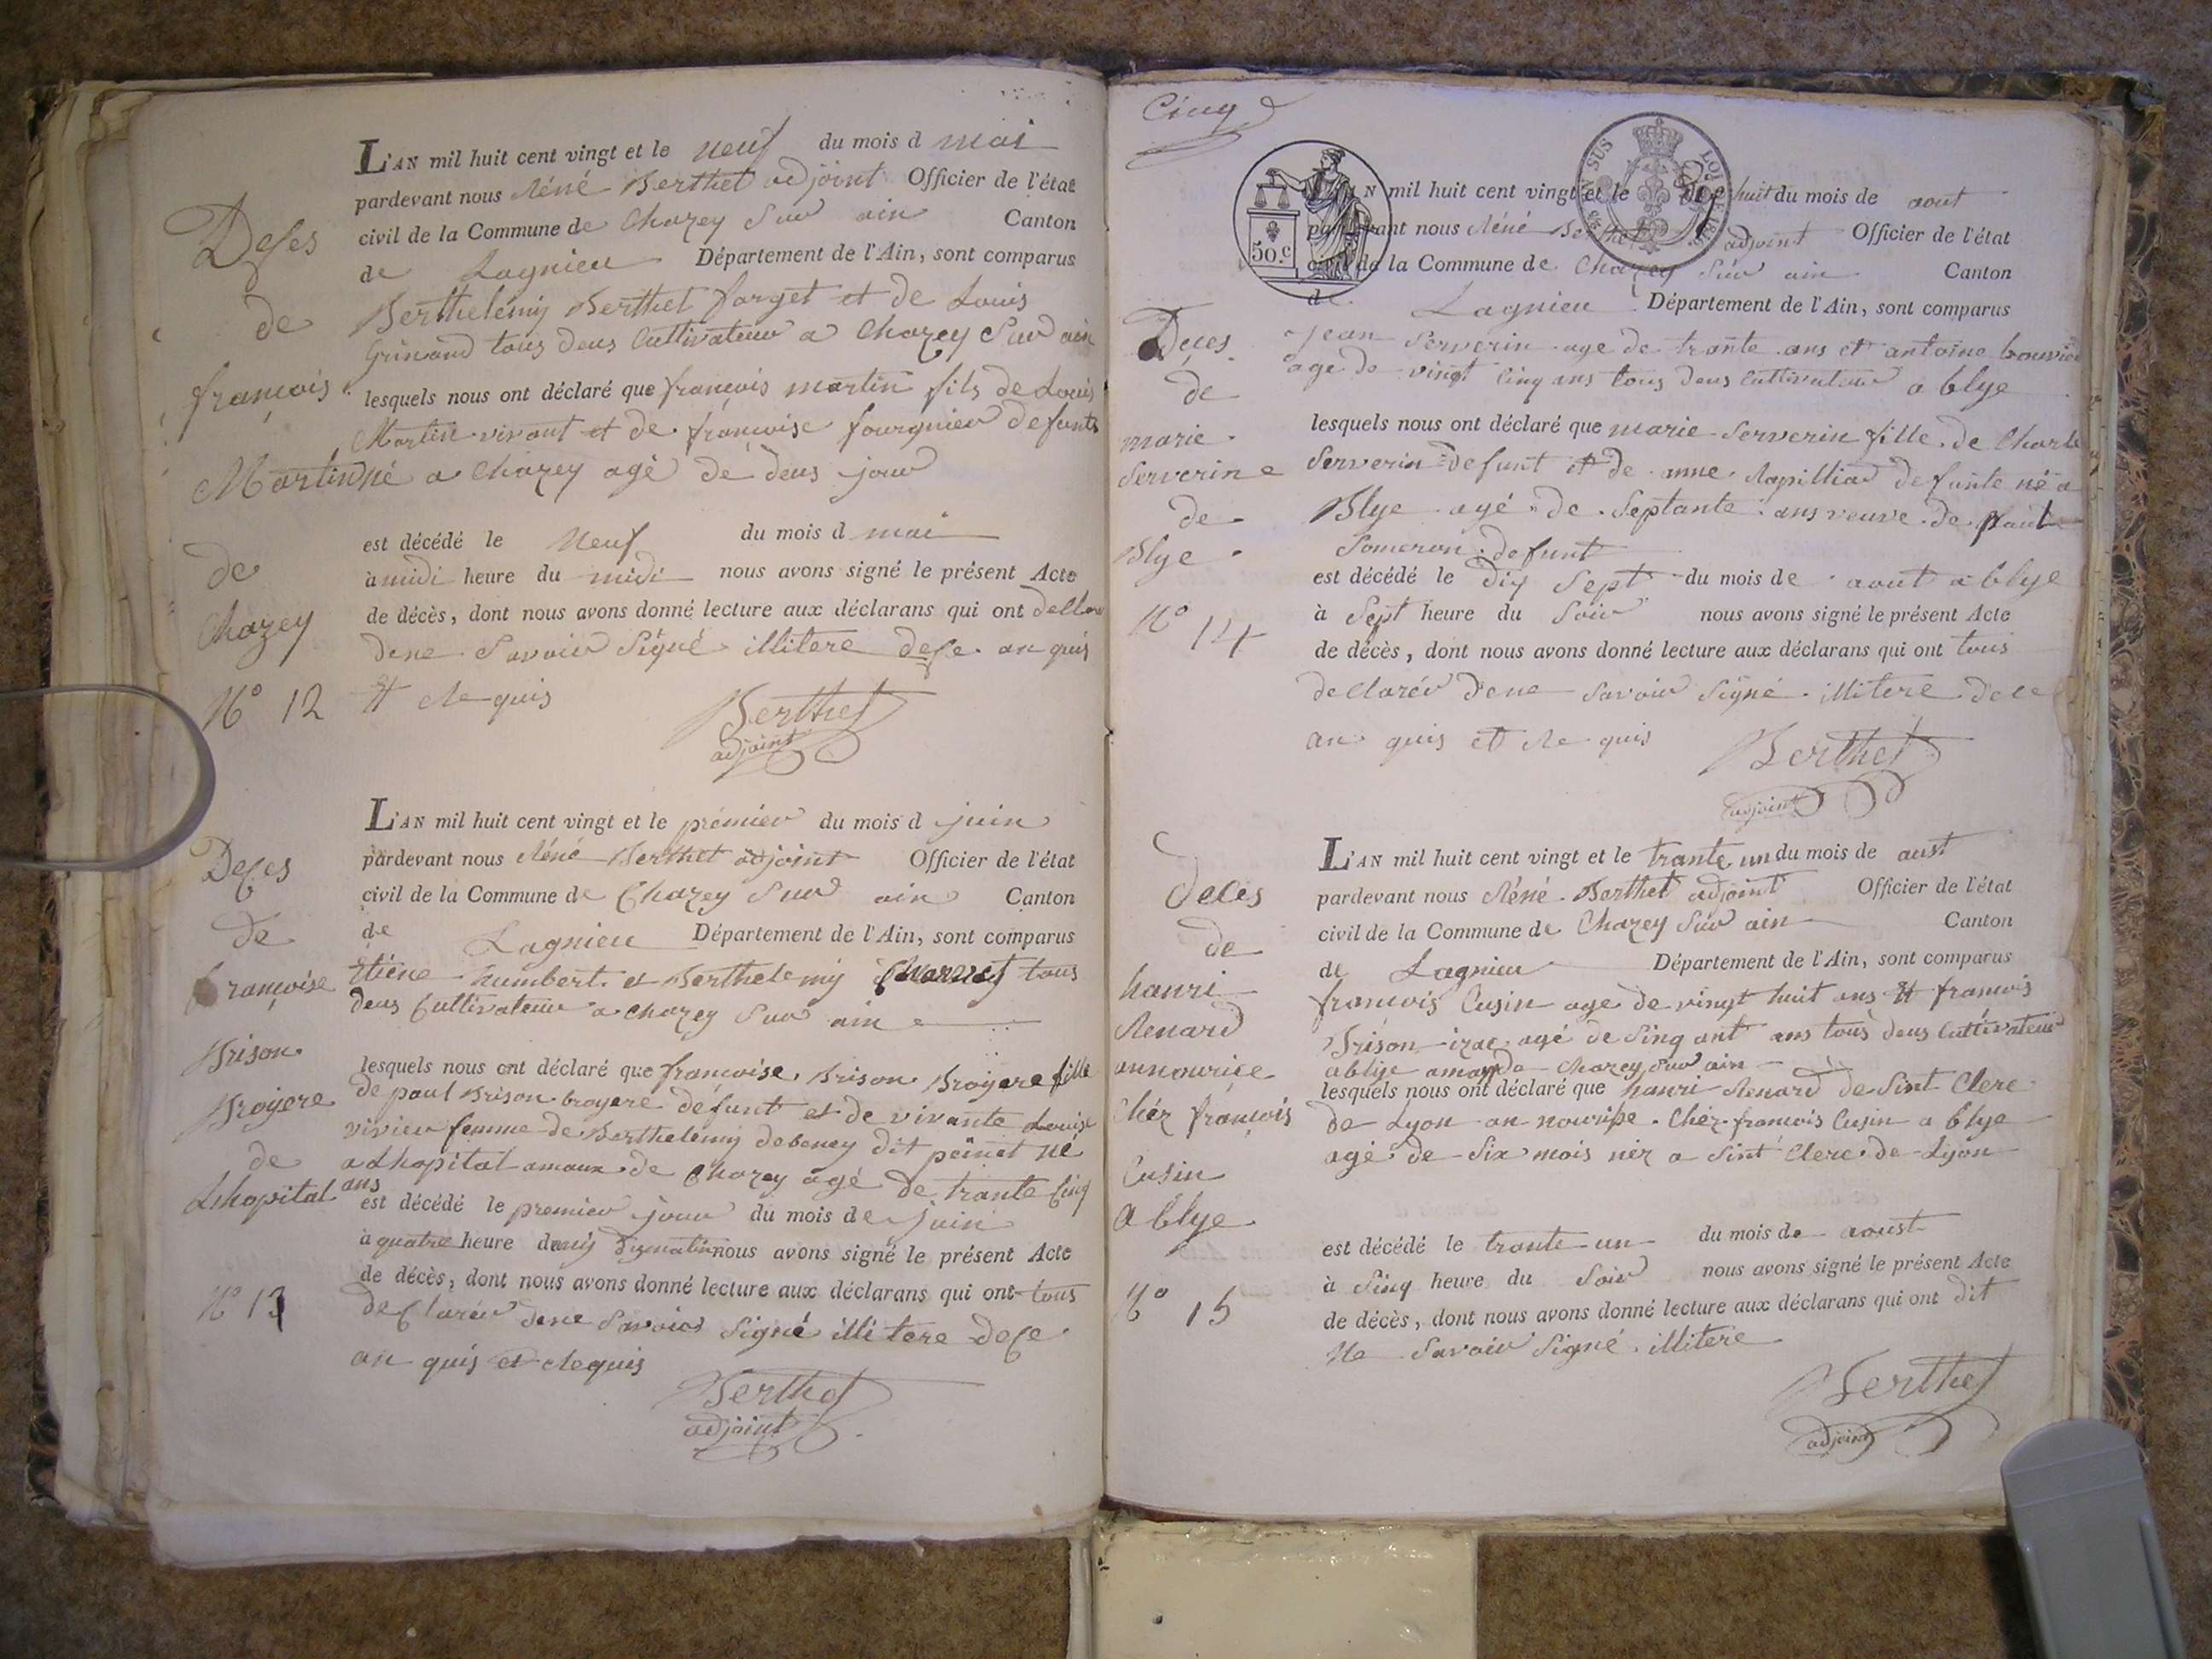 Deses
de
françois
Martin
de
Chazey
N° 12
L'AN mil huit cent vingt et le neuf du mois d mai
pardevant nous Réné Berthet adjoint Officier de l'état
civil de la Commune de Chazey Sur ain Canton
de Lagnieu Département de l'Ain, sont comparus
Berthelémy Berthet forget et de Louis
Grinand tous deus Cultivateur a Chazey Sur ain
lesquels nous ont déclaré que françois martin fils de Louis
Martin vivant et de françoise fourgnier defunte
né a Chazey agé de deus jour
est décédé le Neuf du mois d mai
à midi heure du midi nous avons signé le présent Acte
de décès, dont nous avons donné lecture aux déclarans qui ont
dene Savoir Signé illitere dese an quis
et Re quis
Berthet
adjoint
Deses
de
françoise
Brison
Broyere
de
Lhopital
N° 13
L'AN mil huit cent vingt et le premier du mois d juin
pardevant nous Réné Berthet adjoint Officier de l'état
civil de la Commune de Chazey Sur ain Canton
de Lagnieu Département de l'Ain, sont comparus
Etiene humbert et Berthelemy Charvet tous
deus Cultivateur a Chazey Sur ain
lesquels nous ont déclaré que françoise Brison Broyere fille
de paul Brison broyere défunt et de vivante Louise
vivier femme de Berthelemy debeney dit peinet né
a Lhopital amaux de Chazey agé de trante Cinq
ans
est décédé le premier jour du mois de juin
à quatre heure du matin nous avons signé le présent Acte
de décès, dont nous avons donné lecture aux déclarans qui ont tous
declarér dene Savoir Signé illitere dese
an quis et Requis
Berthet
adjoint
Cinq
50.c
Deces
de
marie
Serverin
de
Blye
N° 14
L'AN mil huit cent vingt et le dix huit du mois de aout
pardevant nous Réné Berthet adjoint Officier de l'état
civil de la Commune de Chazey Sur ain Canton
de Lagnieu Département de l'Ain, sont comparus
jean Serverin age de trante ans et antoine bouvier
age de vingt Cinq ans tous deus Cultivateur a blye
lesquels nous ont déclaré que marie Serverin fille de Charle
Serverin defunt et de anne Rapilliar defunte né a
Blye agé de Septante ans veuve de paul
Someron defunt
est décédé le dix Sept du mois de aout a blye
à Sept heure du Soir nous avons signé le présent Acte
de décès, dont nous avons donné lecture aux déclarans qui ont tous
declarér dene Savoir Signé illitere dece
an quis et Re quis
Berthet
adjoint
Deces
de
hanri
Renard
annourice
Chéz françois
Cusin
a blye
N° 15
L'AN mil huit cent vingt et le trante un du mois de aust
pardevant nous Réné Berthet adjoint Officier de l'état
civil de la Commune de Chazey Sur ain Canton
de Lagnieu Département de l'Ain, sont comparus
françois Cusin age de vingt huit ans et françois
Brison izac agé de Sinq ant ans tous deus Cultivateur
a blye amaux de Chazey Sur ain
lesquels nous ont déclaré que hanri Renard de Sint Clere
de Lyon an nourisse Chéz françois Cusin a blye
agé de Six mois néz a Sint Clere de Lyon
est décédé le trante un du mois de aoust
à Sinq heure du Soir nous avons signé le présent Acte
de décès, dont nous avons donné lecture aux déclarans qui ont dit
Ne Savoir Signé illitere
Berthet
adjoint